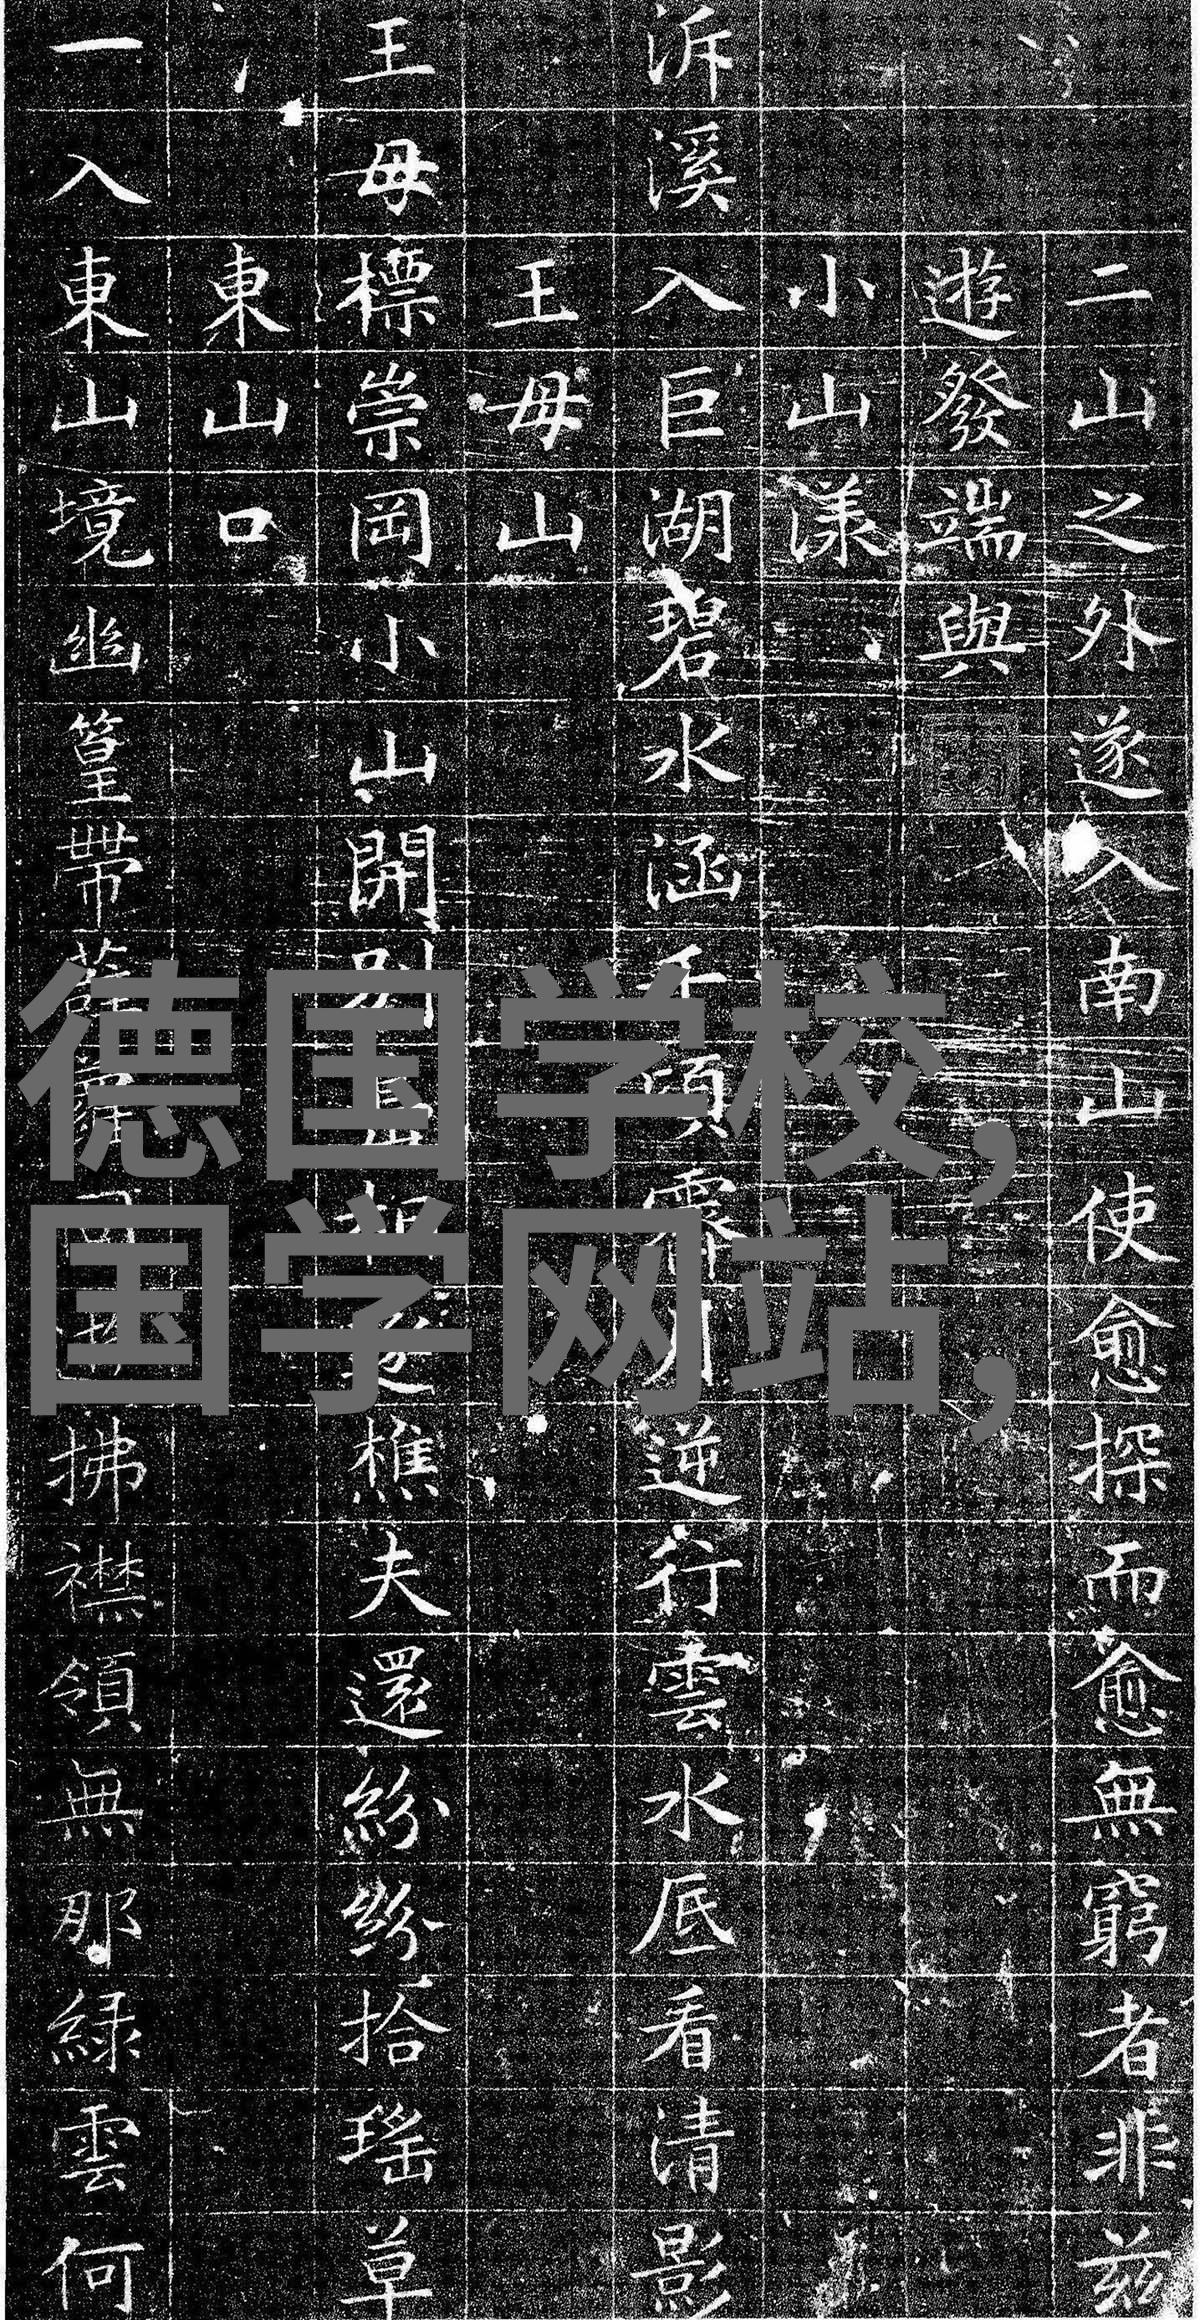 二山之外遂入南山使愈探而愈無窮者非茲
遊發端與
小山漾
泝溪入巨湖碧水涵千頃霽月逆行雲水底看清影
王母山
王母標崇岡小山開別相逐樵夫還紛紛拾瑤草
東山口
一入東山境幽篁帶薜蘿拂襟領無那綠雲何
德国学校,
国学网站,